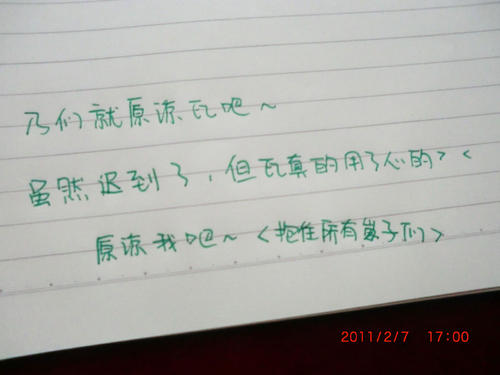 乃们就原谅瓦吧~
虽然迟到了，但瓦真的用了心的?<
原谅我吧~<抱住所有崽子们>
2011/2/7 17:00